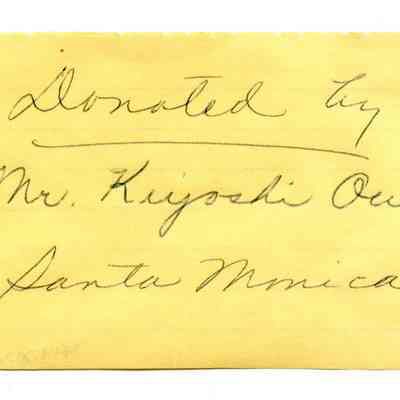 Donated by
Mr. Kiyoshi
Santa Monica